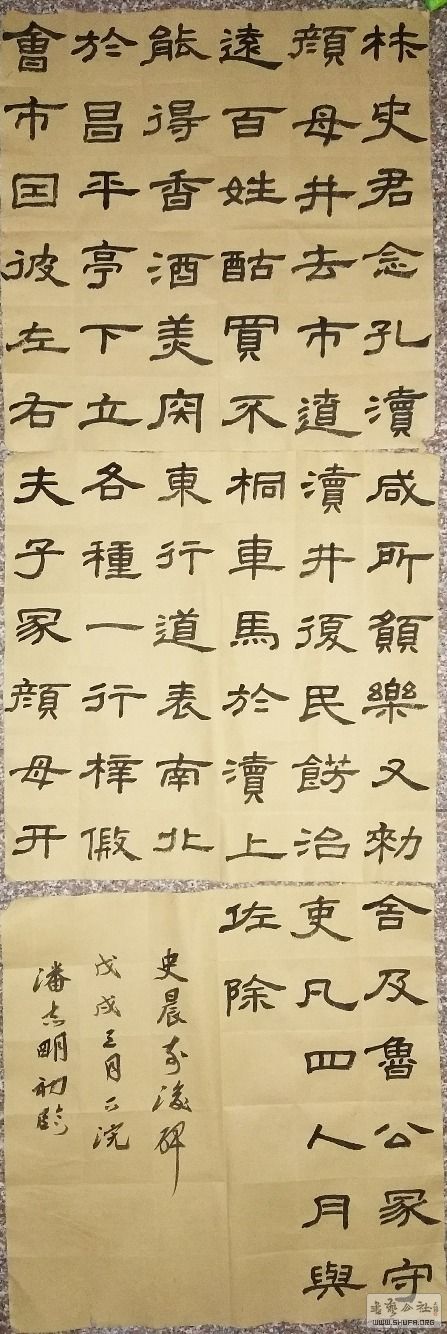 材史君念孔瀆
顏母井去市遼
遠百姓酤買不
能得香酒美肉
於昌平亭下立
會市因彼左右
咸所願樂又勑
瀆井復民飭治
桐車馬於瀆上
東行道表南北
各種一行梓假
夫子冢顏母开
舍及魯公冢守
吏凡四人月與
佐除
史晨前後碑
戊戌三月下浣
潘志明初臨
書藝公社
WWW.SHUFA.ORG